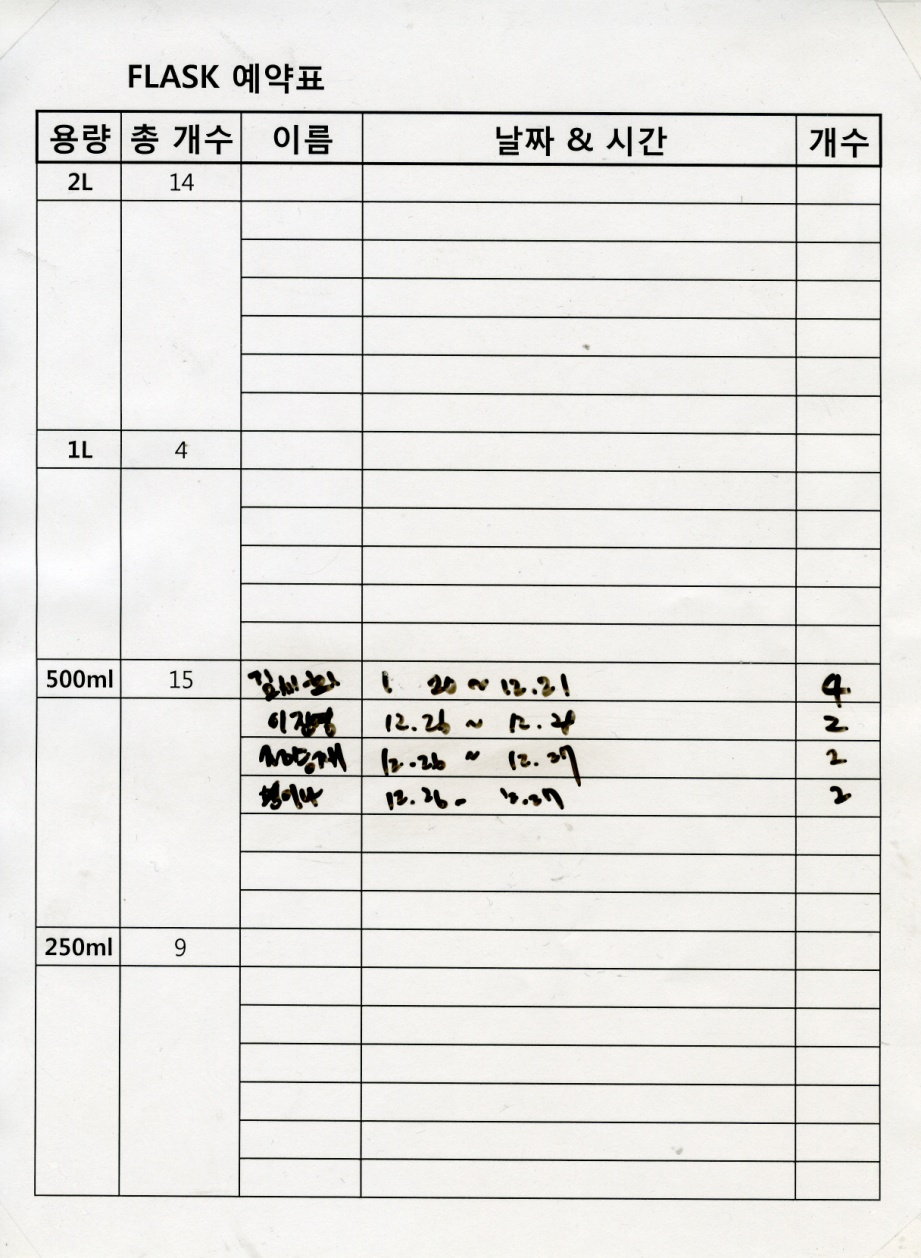 FLASK 예약표
용량 총 개수 이름 날짜 & 시간 개수
2L 14
1L 4
500ml 15 1 20 ~ 12.21 4
12.26 ~ 12. 2
12.26 ~ 12.27 2
12.26 - 12.27 2
250ml 9